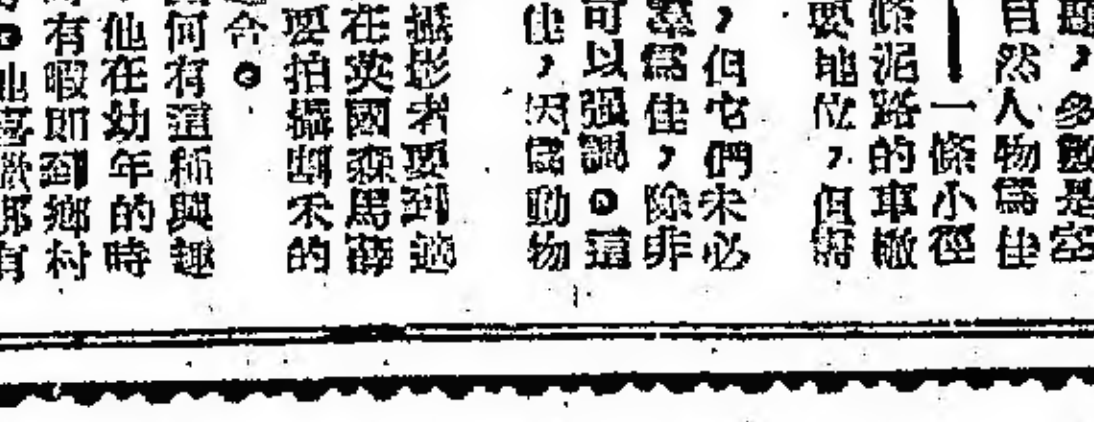 題，多數是空
自然人物爲佳
——一條小徑
條泥路的車轍
要地位，但需
，但它們未必
羣爲佳，除非
可以强調。這
佳，因爲動物
攝影者要到適
在英國森馬薛
要拍攝割禾的
合。
何有這種興趣
他在幼年的時
有暇即到鄉村
。他喜歡那有